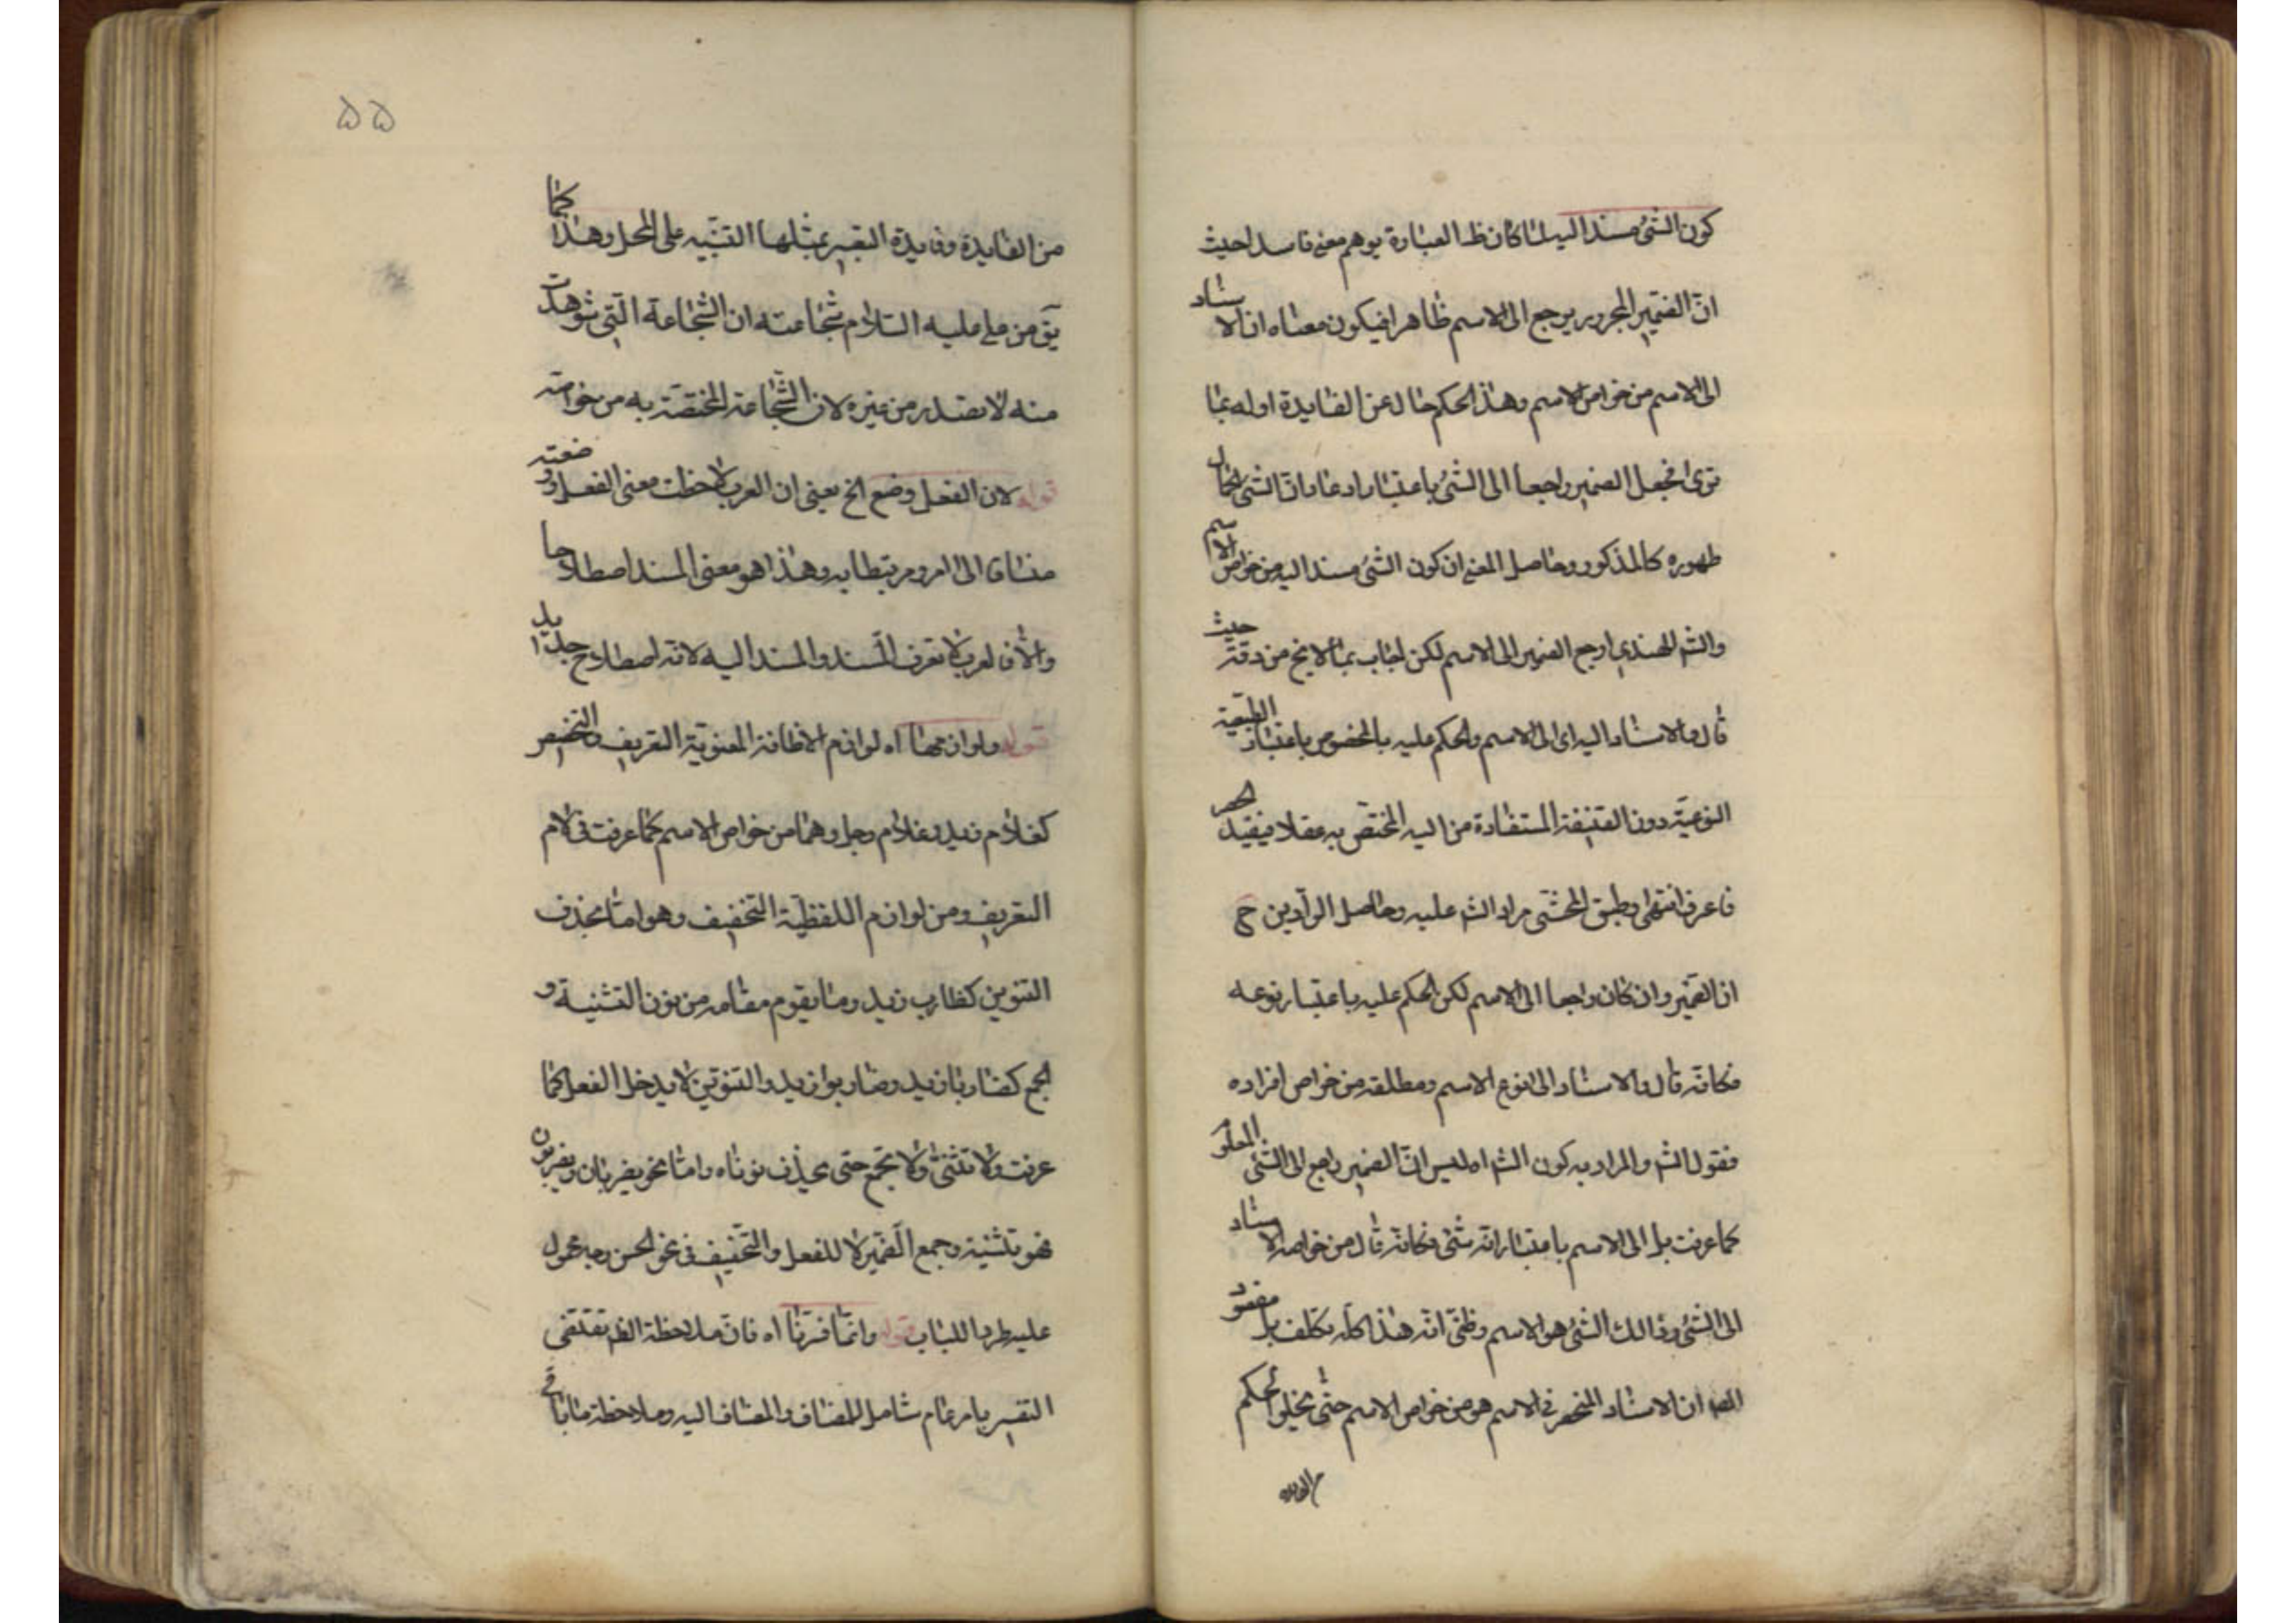 كون الشئ مسندا اليه لما كان ظ العبارة يوهم معنى فاسدا حيث
انّ الضمير المجرور يرجع الى الاسم ظاهرا فيكون معناه ان الاسناد
الى الاسم من خواص الاسم وهذا الحكم خال عن الفايدة اوله بما
ترى فجعل الضمير راجعا الى الشئ باعتبار ادعاء انّ الشئ لكمال
ظهوره كالمذكور وحاصل المعنى ان كون الشئ مسندا اليه من خواص الاسم
والش الهندى ارجع الضمير الى الاسم لكن اجاب بما لا يخ من دقة حيث
قال والاسناد اليه اى الى الاسم والحكم عليه بالخصوص باعتبار الطبيعة
النوعية دون المستفادة من اليه المختص به عقلا فيفيد الحصر
فاعرف انتهى وطبق المحشى مراد الش عليه وحاصل الرأيين ح
ان الضمير وان كان راجعا الى الاسم لكن الحكم عليه باعتبار نوعه
فكانه قال والاسناد الى نوع الاسم ومطلقه من خواص افراده
فقول الش والمراد به كون الش اه ليس انّ الضمير راجع الى الشئ المعلو
كما عرفت بل الى الاسم باعتبار انه شئ فكانه قال من خواصه الاسناد
الى الشئ وذالك الشئ هو الاسم وظنّى انه هذا كله تكلف بل مقصود
المص ان الاسناد المنحصر فى الاسم هو من خواص الاسم حتى يخلو الحكم
من الفايده
۵۵
من الفايدة وفايدة التعبير بمثلها التنبيه على المحل وهذا كما
يق من على عليه السلام شجاعته ان الشجاعة التى شوهدت
منه لا تصدر من غيره لان الشجاعة المختصة به من خواصه
قوله لان الفعل وضع الخ يعنى ان العرب لاحظت معنى الفعل ووضعته
مضافا الى امر ومرتبطا به وهذا هو معنى المسند اصطلاحا
والا فالعرب لا تعرف المسند والمسند اليه لانه اصطلاح جديد
قوله ولوازمها اه لوازم الاظافة المعنوية التعريف والتخصيص
كغلام زيد وغلام رجل وهما من خواص الاسم كما عرفت فى لام
التعريف ومن لوازم اللفظية التخفيف وهو اما بحذف
التنوين كظارب زيد وما يقوم مقامه من نون التثنية و
الجمع كضاربا زيد وضاربوا زيد والتنوين لا يدخل الفعل كما
عرفت ولا تثنى ولا تجمع حتى يحذف نوناه واما نحو يضربان ويضربون
فهو تثنية وجمع الضمير لا للفعل والتخفيف فى نحو الحسن وجه محمول
عليه طردا للباب قوله وانما فسرنا اه فان ملاحظة الظ تقتضى
التفسير بامر عام شامل للمضاف والمضاف اليه وملاحظة ما باقى